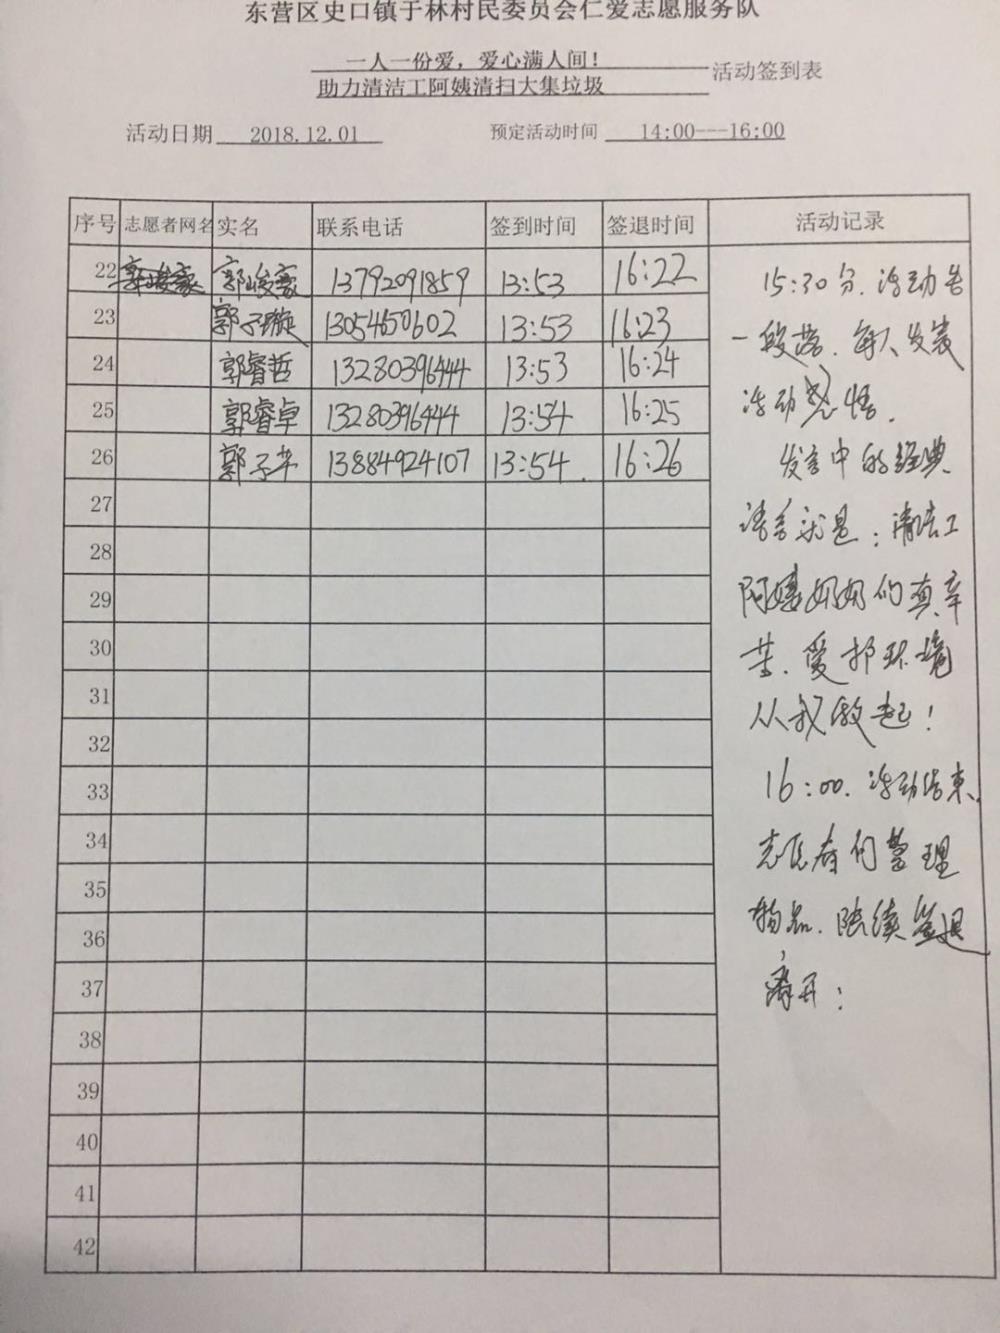 东营区史口镇于林村民委员会仁爱志愿服务队
一人一份爱，爱心满人间！
助力清洁工阿姨清扫大集垃圾 活动签到表
活动日期 2018.12.01 预定活动时间 14:00---16:00
序号 志愿者网名 实名 联系电话 签到时间 签退时间 活动记录
22 郭峻豪 郭峻豪 13792091859 13:53 16:22
23 郭子璇 13054650602 13:53 16:23
24 郭睿哲 13280396444 13:53 16:24
25 郭睿卓 13280396444 13:54 16:25
26 郭子 13884924107 13:54 16:26
27
28
29
30
31
32
33
34
35
36
37
38
39
40
41
42
15:30分.活动告
一段落.每人发表
活动感悟.
发言中的经典
语言就是：清洁工
阿姨奶奶们真辛
苦.爱护环境
从我做起！
16:00.活动结束
志愿者们整理
物品.陆续签退
离开；